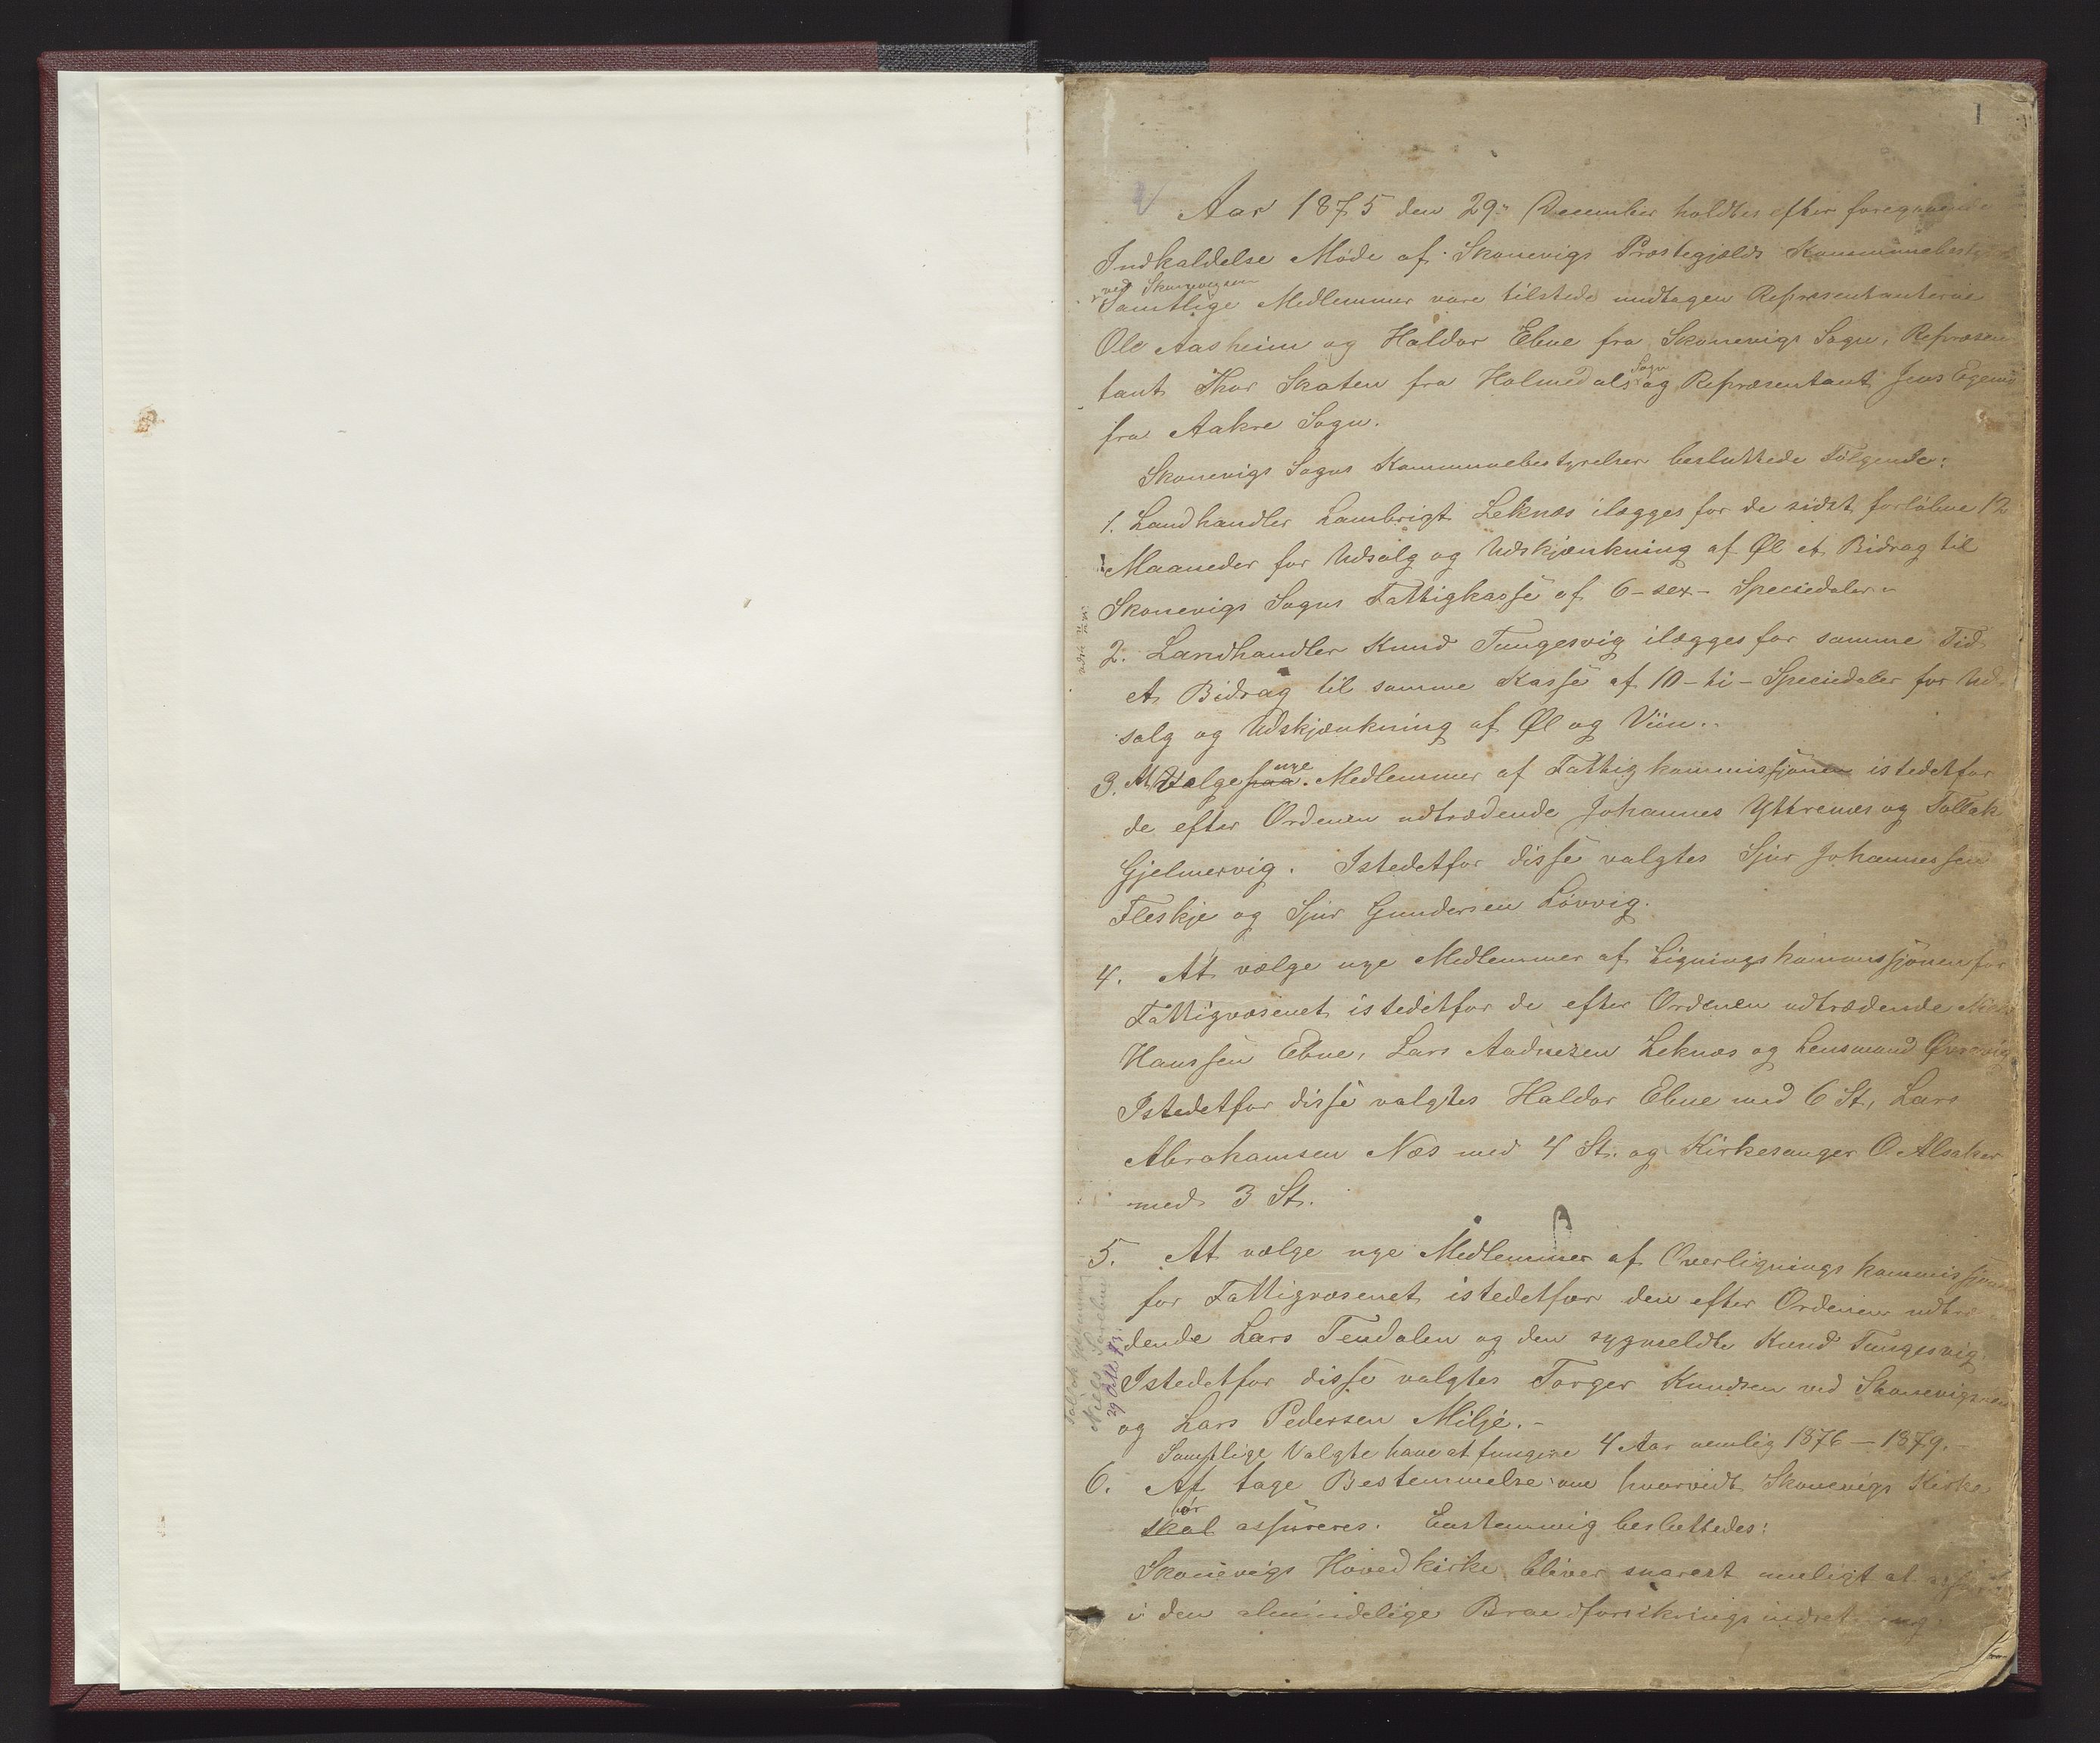 1
Aar 1875 den 29. December holdtes efter foregaaende
Indkaldelse Møde af Skonevigs Præstegjelds Kommunebestyrelse
ved Skonevigsøen
Samtlige Medlemmer vare tilstede undtagen Repræsentanterne
Ole Aasheim og Haldor Ebne fra Skonevigs Sogn, Repræsen
tant Thor Skaten fra Holmedals Sogn og Repræsentant Jens
fra Aakre Sogn.
Skonevigs Sogns Kommunebestyrelser besluttede Følgende:
1. Landhandler Lambrigt Leknæs ilægges for de sidst forløbne 12
Maaneder for Udsalg og Udskjænkning af Øl et Bidrag til
Skonevigs Sogns Fattigkasse af 6 - sex - Speciedaler
2. Landhandler Knud Tungesvig ilægges for samme Tid
et Bidrag til samme Kasse af 10 - ti - Speciedaler for Ud-
salg og Udskjænkning af Øl og Viin.
3. At Vælge paa nye Medlemmer af Fattigkommissjonen istedetfor
de efter Ordenen udtrædende Johannes Yttrenæs og Tollak
Gjelmervig. Istedetfor disse valgtes Sjur Johannessen
Fleskje og Sjur Gundersen Løvvig.
4. At vælge nye Medlemmer af Ligningskommissjonen for
Fattigvæsenet istedetfor de efter Ordenen udtrædende
Hanssen Ebne, Lars Aadnesen Leknæs og Lensmand
Istedetfor disse valgtes Haldor Ebne med 6 St, Lars
Abrahamsen Næs med 4 St. og Kirkesanger O Alsaker
med 3 St.
5. At vælge nye Medlemmer af Overligningskommissjonen
for Fattigvæsenet istedetfor den efter Ordenen udtræ
dende Lars Tendalen og den sygmeldte Knud Tungesvig.
Istedetfor disse valgtes Torger Knudsen ved Skonevigsøen
og Lars Pedersen Milje. -
Samtlige Valgte have at fungere 4 Aar nemlig 1876 - 1879.
6. At tage Bestemmelse om hvorvidt Skonevigs Kirke
skal bør assureres. Enstemmig besluttedes:
Skonevigs Hovedkirke bliver snarest muligt at
i den almindelige Brandforsikringsindretning